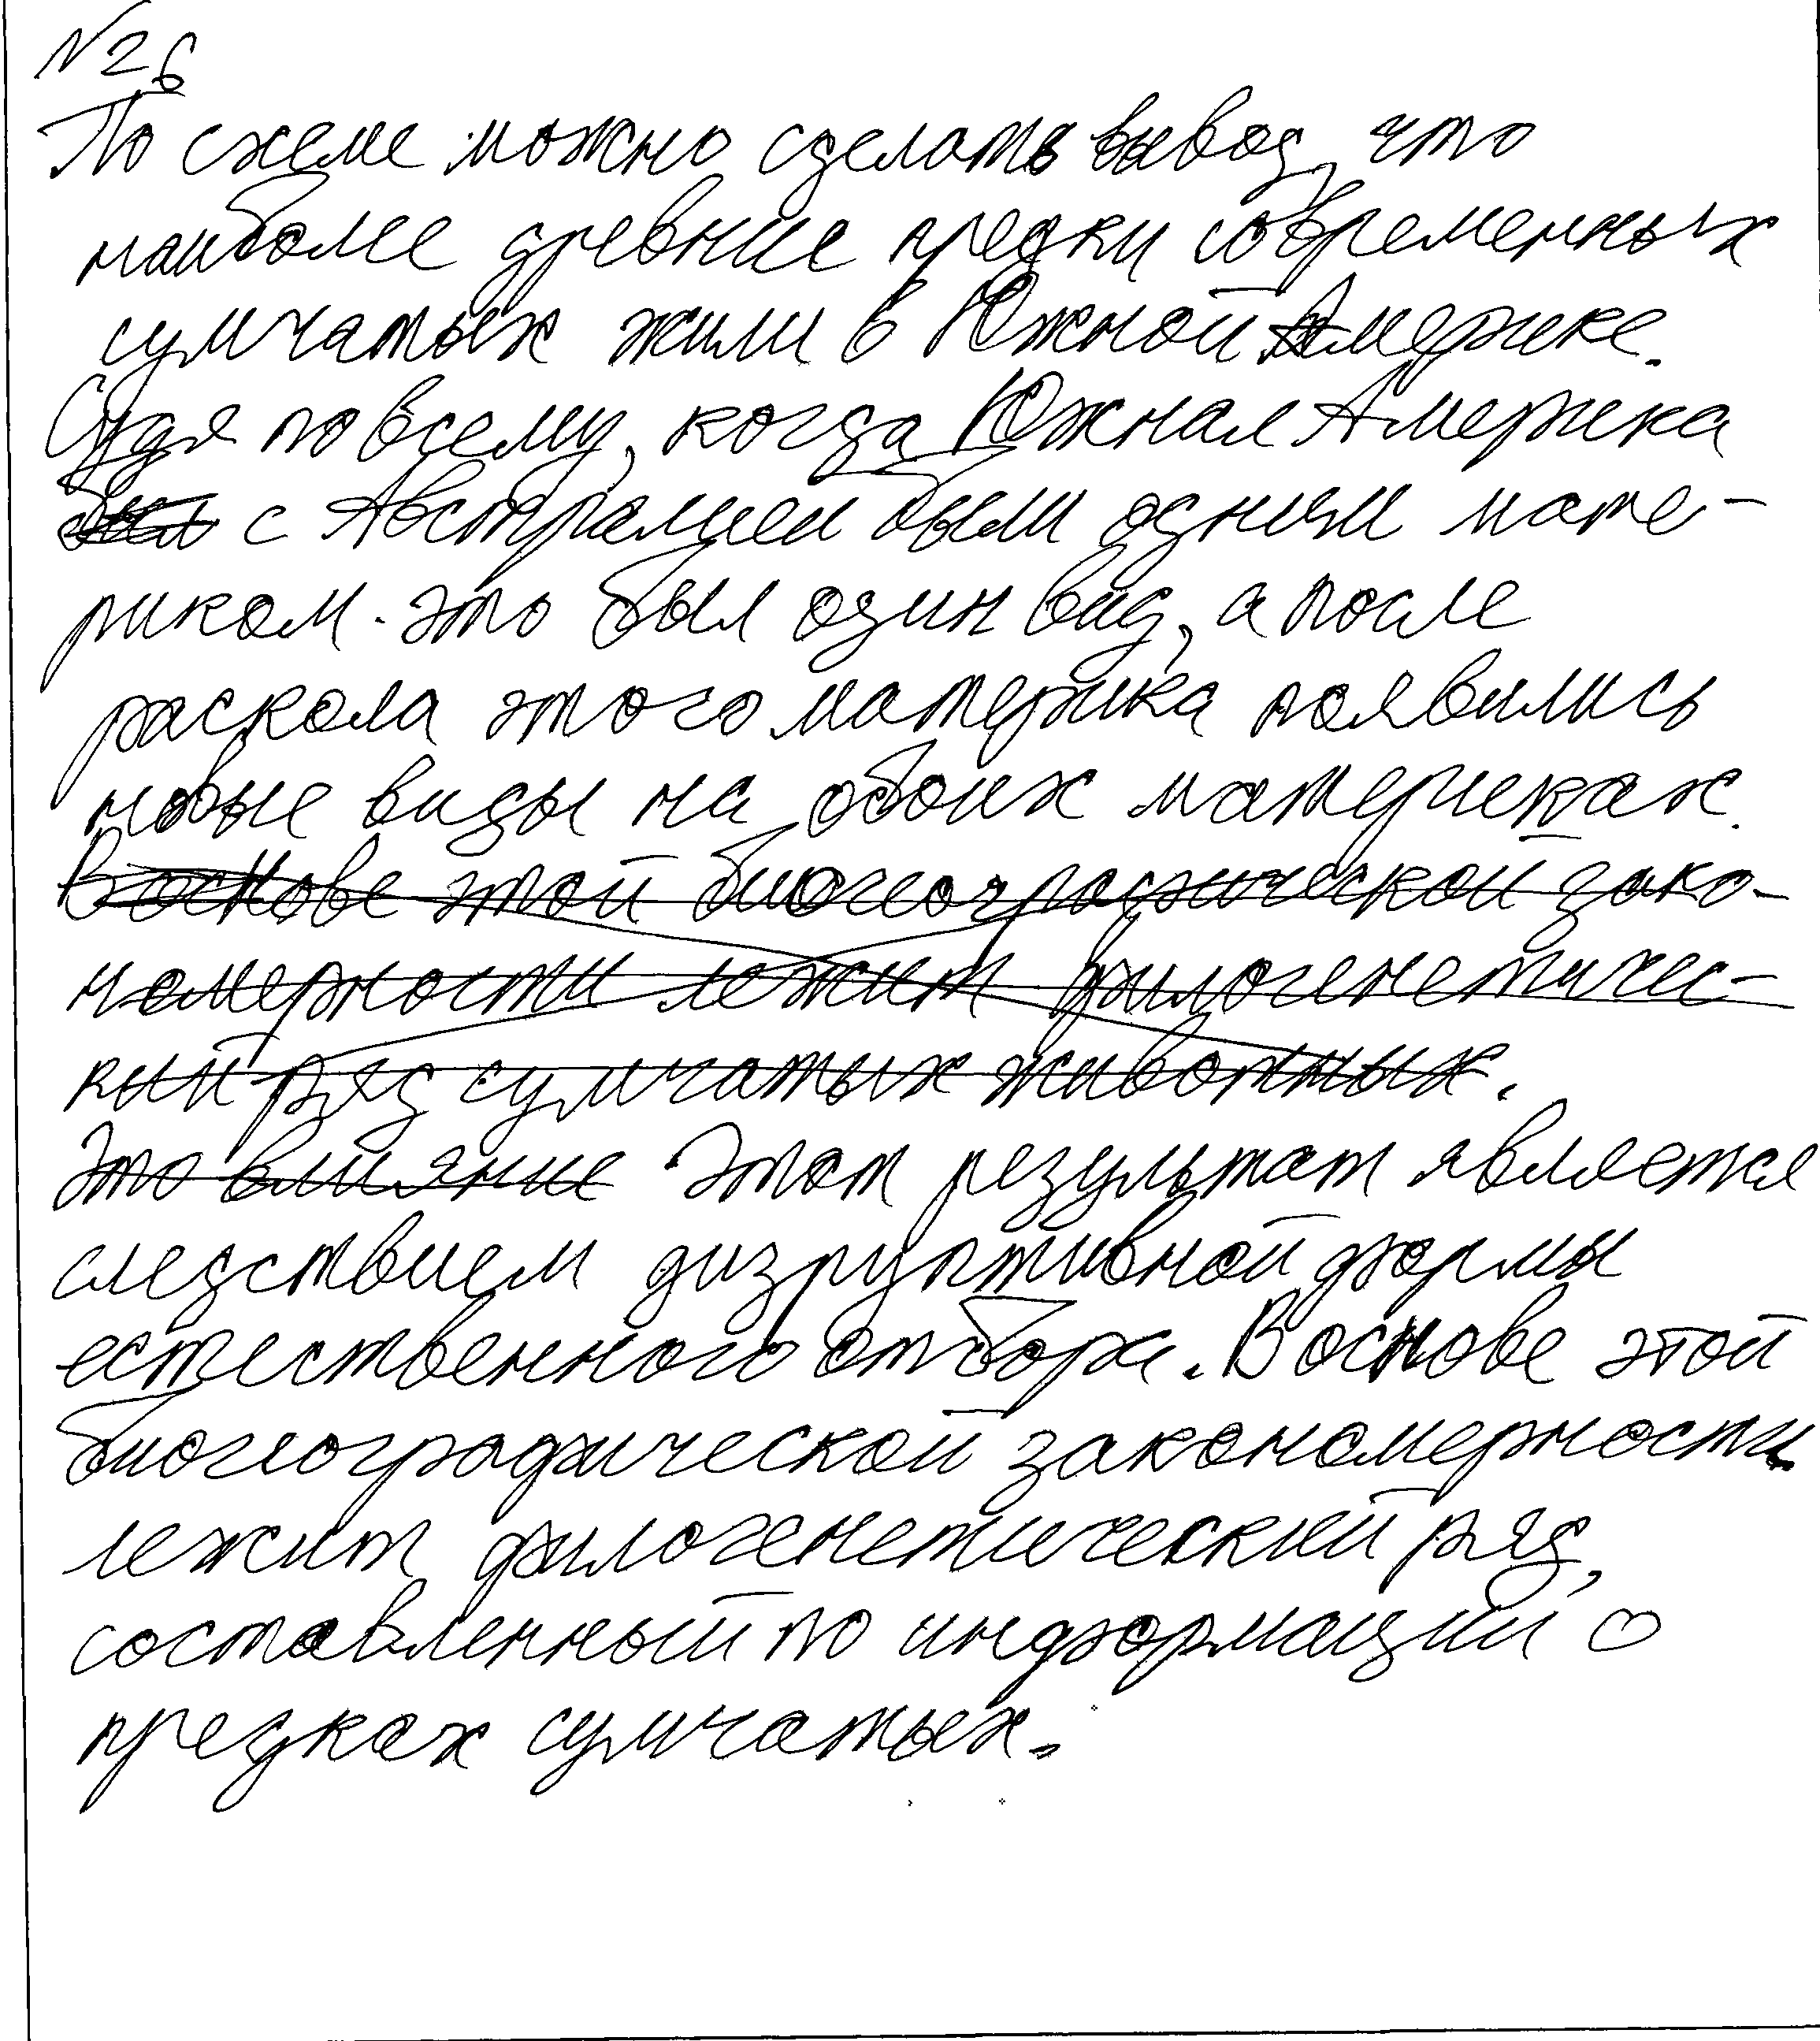 №26
По схеме можно сделать вывод, что
наиболее древние предки современных
сумчатых жили в Южной Америке.
Судя по всему, когда Южная Америка
с Австралией были одним мате-
риком это был один вид, а после
раскола этого материка появились
новые виды на обоих материках.
В основе этой биогеографической зако-
номерности лежит филогенетичес-
кий ряд сумчатых животных.
Это влияние Этот результат является
следствием дизруптивной формы
естественного отбора. В основе этой
биогеографической закономерности
лежит филогенетический ряд,
составленный по информаций о
предках сумчатых.